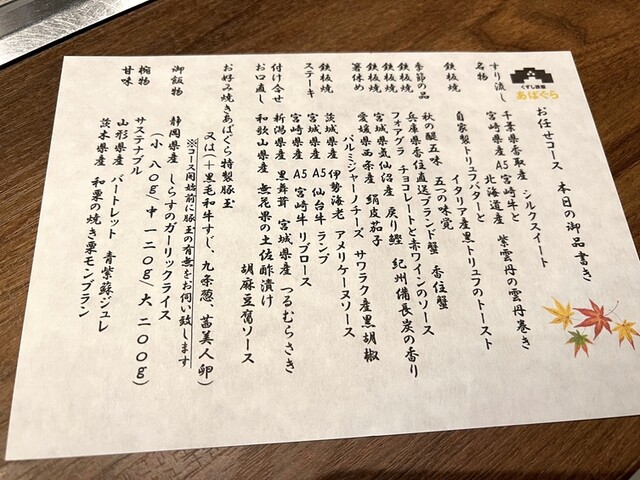 くずし鉄板
あばぐら
お任せコース 本日の御品書き
すり流し 千葉県香取産 シルクスイート
名物 宮崎県産A5宮崎牛と北海道産 紫雲丹の雲丹巻き
鉄板焼 自家製トリュフバターと
イタリア産黒トリュフのトースト
季節の品 秋の醍五味 五つの味覚
鉄板焼 兵庫県香住直送ブランド蟹 香住蟹
鉄板焼 フォアグラ チョコレートと赤ワインのソース
鉄板焼 宮城県気仙沼産 戻り鰹 紀州備長炭の香り
箸休め 愛媛県西条産 絹皮茄子
パルミジャーノチーズ サワラク産黒胡椒
鉄板焼 茨城県産 伊勢海老 アメリケーヌソース
ステーキ 宮城県産 A5仙台牛ランプ
宮崎県産 A5宮崎牛リブロース
付け合せ 新潟県産 黒舞茸 宮城県産 つるむらさき
お口直し 和歌山県産 無花果の土佐酢漬け
胡麻豆腐ソース
お好み焼き あばぐら特製豚玉
又は(十黒毛和牛すじ、九条葱、茜美人卵)
※コース開始前に豚玉の有無をお伺い致します
御飯物 静岡県産 しらすのガーリックライス
(小 八〇g/中 一二〇g/大 二〇〇g)
椀物 サステナブル
甘味 山形県産 バートレット 青紫蘇ジュレ
茨木県産 和栗の焼き栗モンブラン